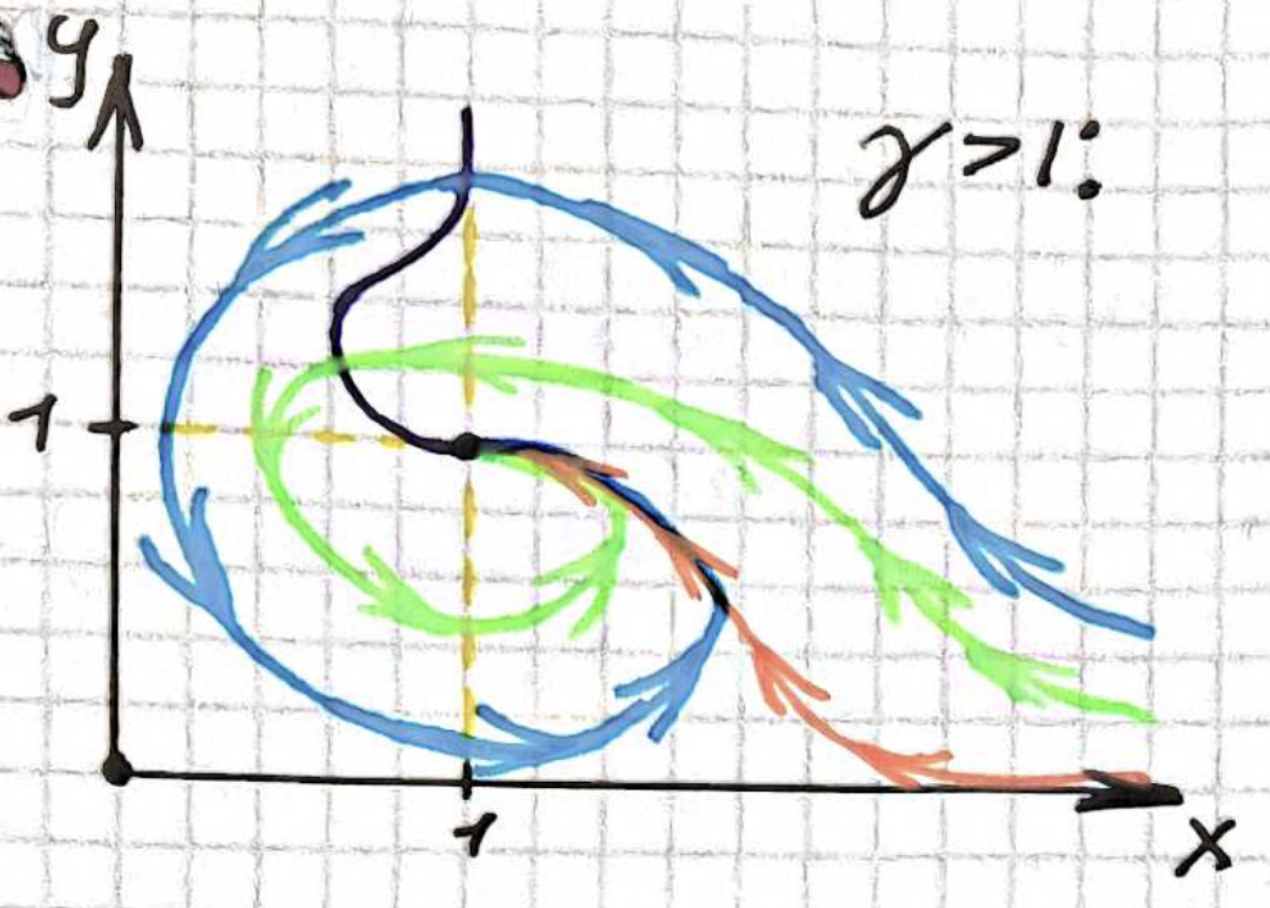 y
γ > 1:
1
1
x